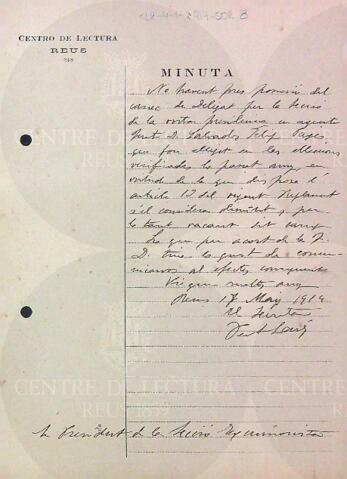 CENTRO DE LECTURA
REUS
MINUTA
No havent pres possessió del
carrec de Delegat per la Secció
de la vostra presidencia en aquesta
Junta D. Salvador
que fou elegit en les eleccions
verificades lo passat any, en
virtud de lo que disposa l'
article 12 del vigent Reglament
s'el considera dimitit y per
lo tant vacant dit carrec
Lo que per acord de la J.
D. tinc lo gust de comu-
nicarvos als efectes consiguients
Visqueu molts anys
Reus 17 May 1919
El Secretari
CENTRE DE LECTURA
REUS 1859
Sr President de la Secció Excursionista